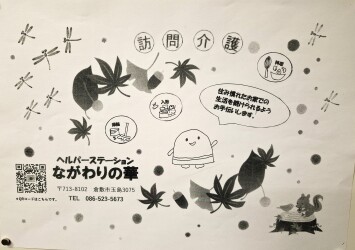 訪問介護
食事
入浴
住み慣れたお家での
生活を続けられるよう
お手伝いします。
ヘルパーステーション
ながわりの華
〒713-8102 倉敷市玉島3075
TEL 086-523-5673
★QRコードはこちらです。